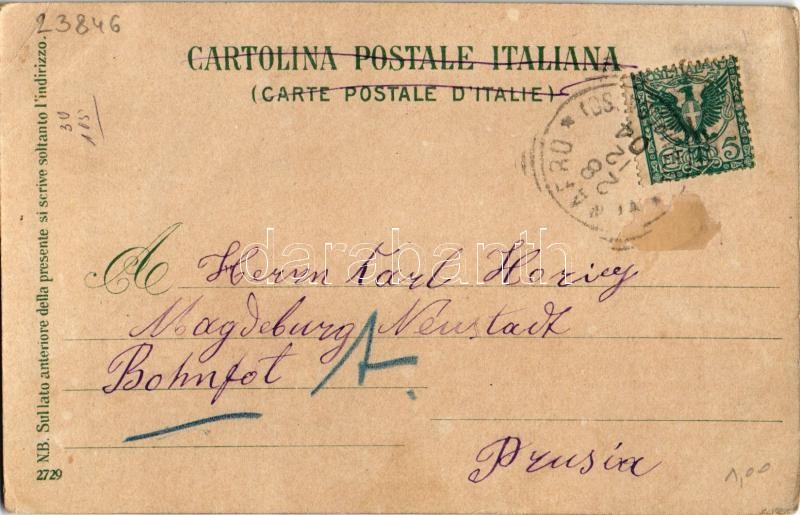 23846
CARTOLINA POSTALE ITALIANA
(CARTE POSTALE D'ITALIE)
N.B. Sul lato anteriore della presente si scrive soltanto l'indirizzo.
2729
30
105
5
8
2-2
04
A Herrn Karl
Magdeburg Neustadt
Bohnfot
Prusia
1,00
darabanth